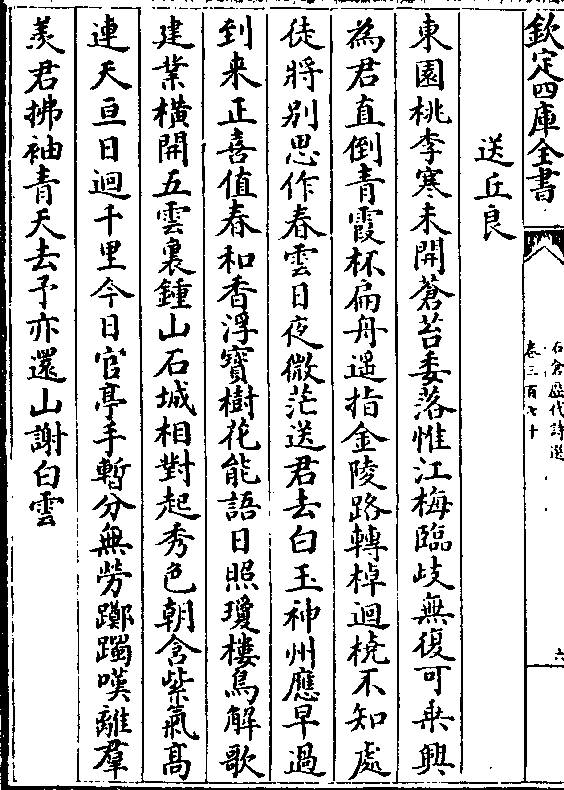 欽定四庫全書
石倉歷代詩選
卷三百七十
六
送丘良
東園桃李寒未開蒼苔委落惟江梅臨歧無復可乗興
為君直倒青霞杯扁舟遥指金陵路轉棹迴橈不知處
徒將别思作春雲日夜微茫送君去白玉神州應早過
到来正喜值春和香浮寳樹花能語日照瓊樓鳥解歌
建業横開五雲裏鍾山石城相對起秀色朝含紫氣髙
連天亘日迴千里今日官亭手暫分無勞躑躅嘆離羣
羡君拂袖青天去予亦還山謝白雲